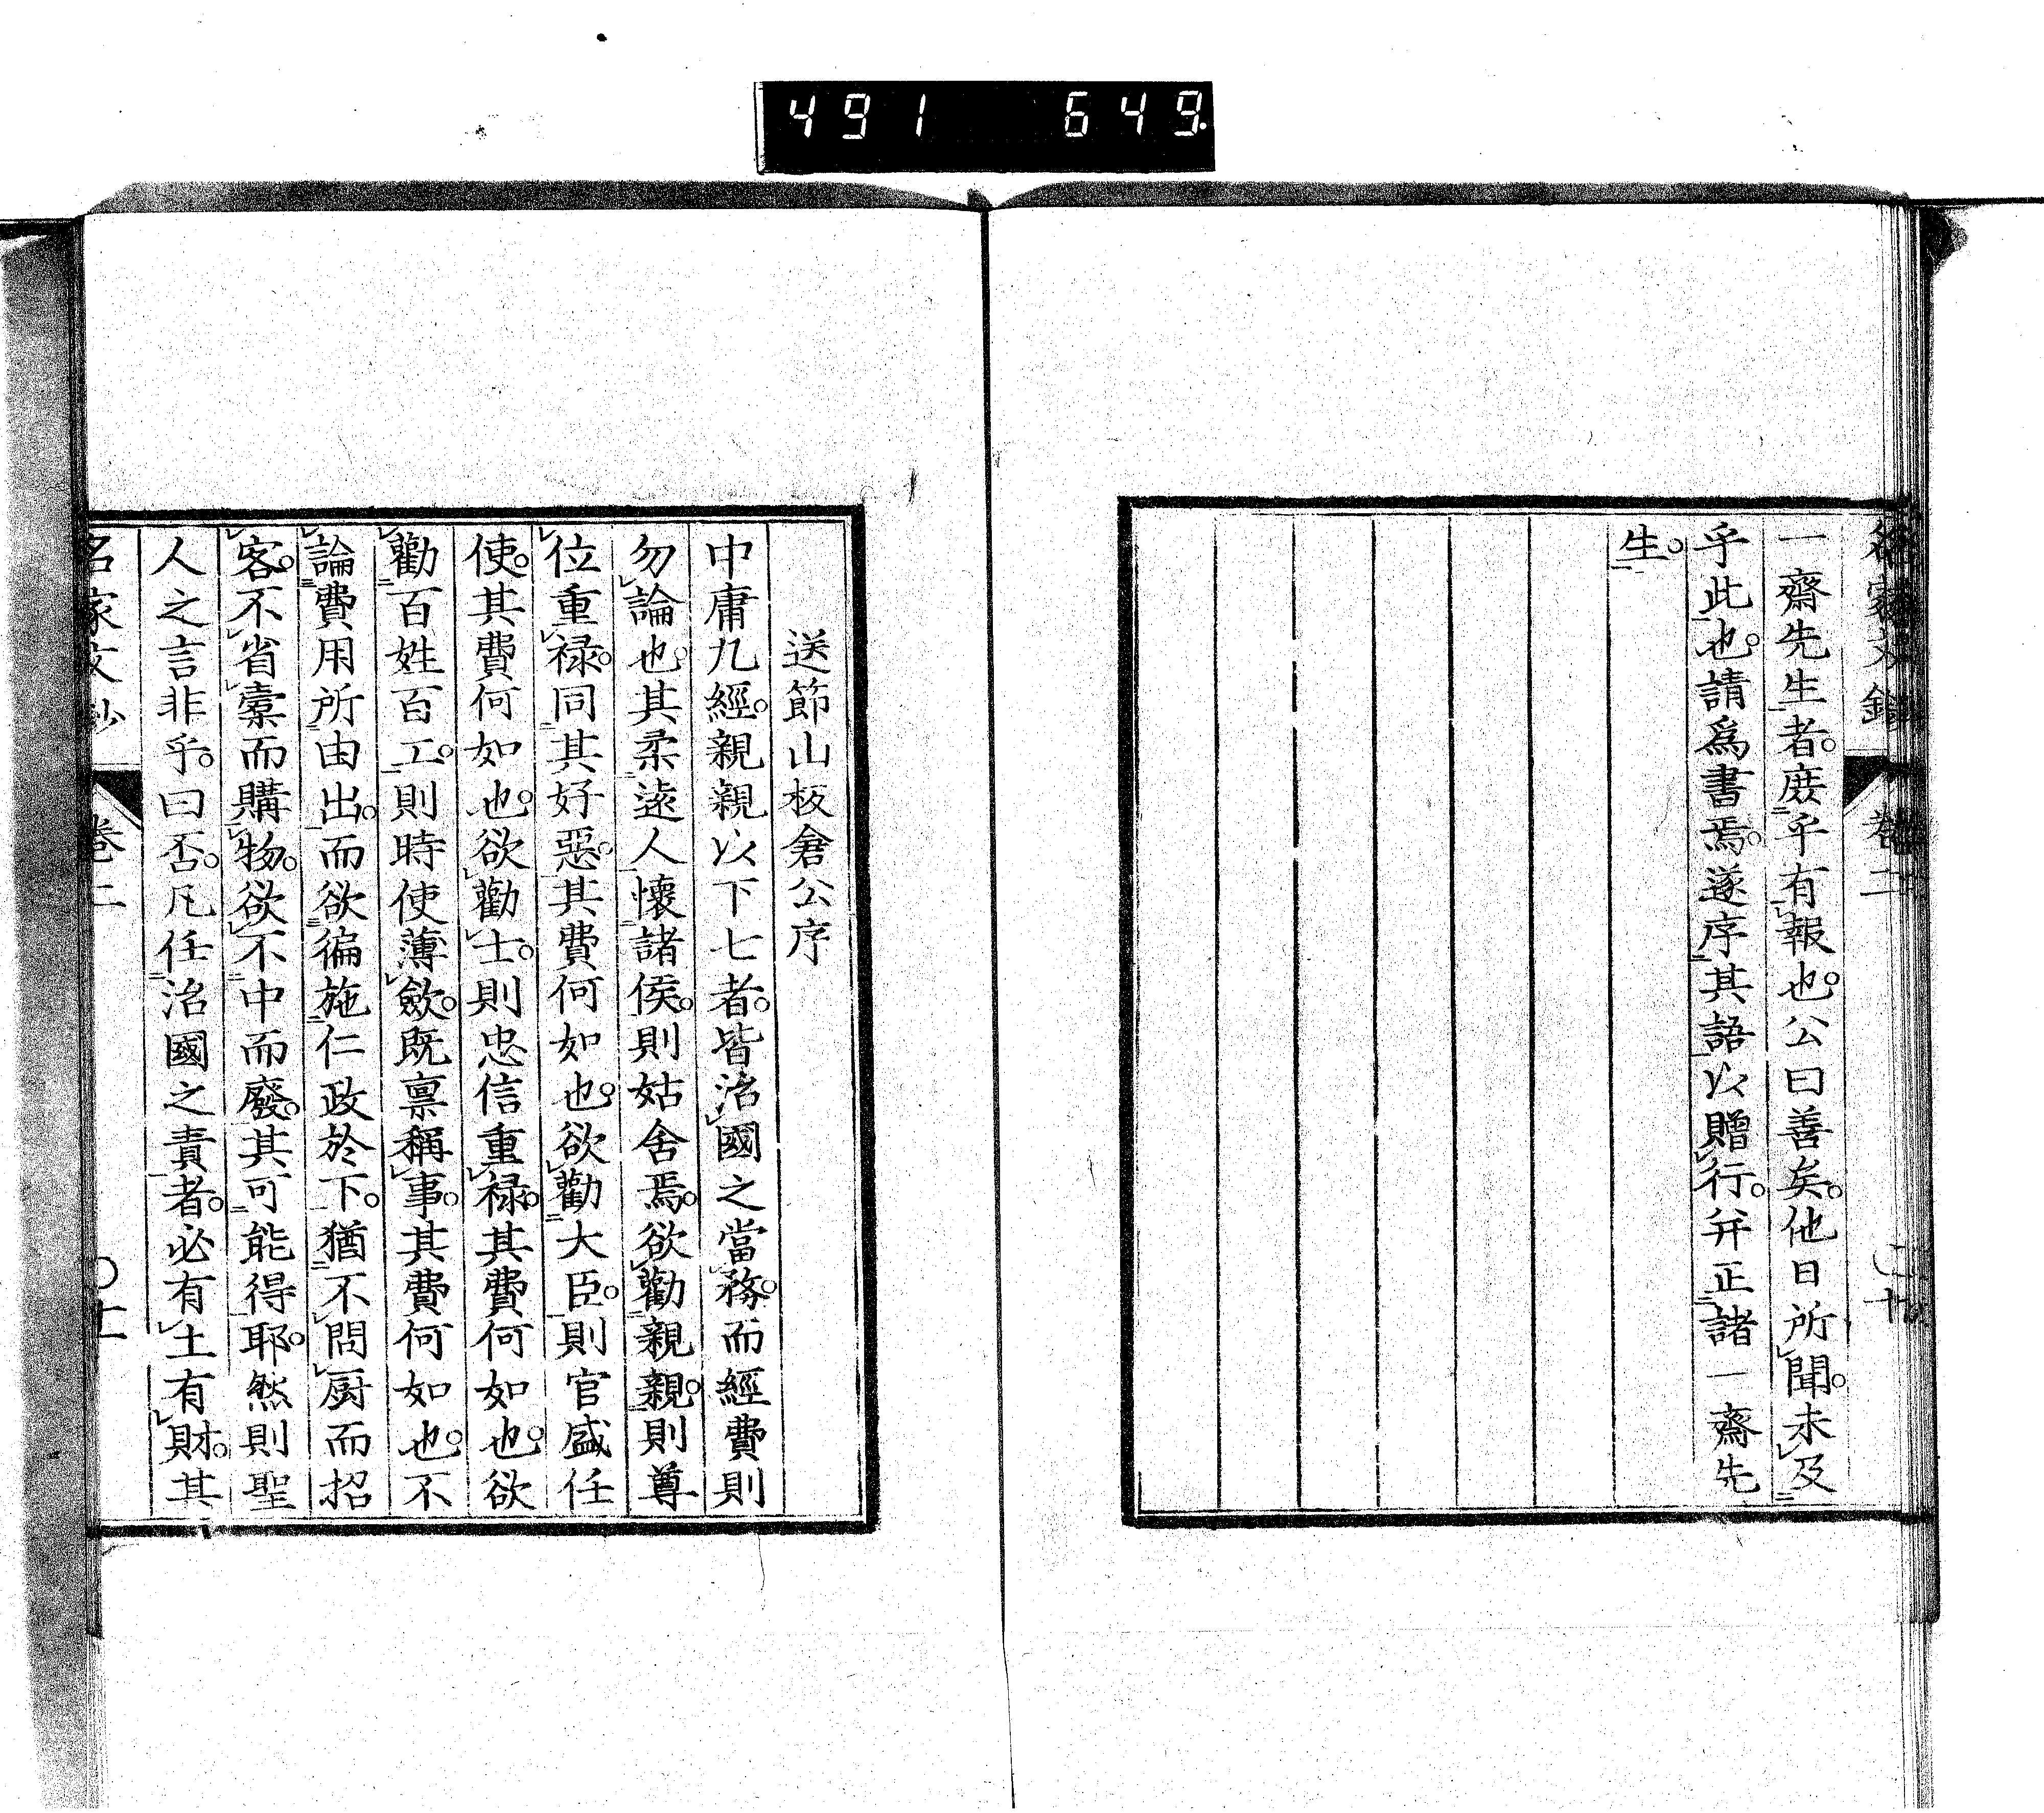 491 649.
一齋先生者。庻乎有報也。公曰善矣。他日所聞。未及
乎此也。請爲書焉。遂序其語以贈行。幷正諸一齋先
生。
送節山板倉公序
中庸九經。親親以下七者。皆治國之當務。而經費則
勿論也。其柔遠人懷諸侯。則姑舍焉。欲勸親親。則尊
位重祿。同其好惡。其費何如也。欲勸大臣。則官盛任
使。其費何如也。欲勸士。則忠信重祿。其費何如也。欲
勸百姓百工。則時使薄斂。既禀稱事。其費何如也。不
論費用所由出。而欲徧施仁政於下。猶不問厨而招
客。不省槖而購物。欲不中而廢。其可能得耶。然則聖
人之言非乎。曰否。凡任治國之責者。必有土有財。其
名家文鈔 卷二